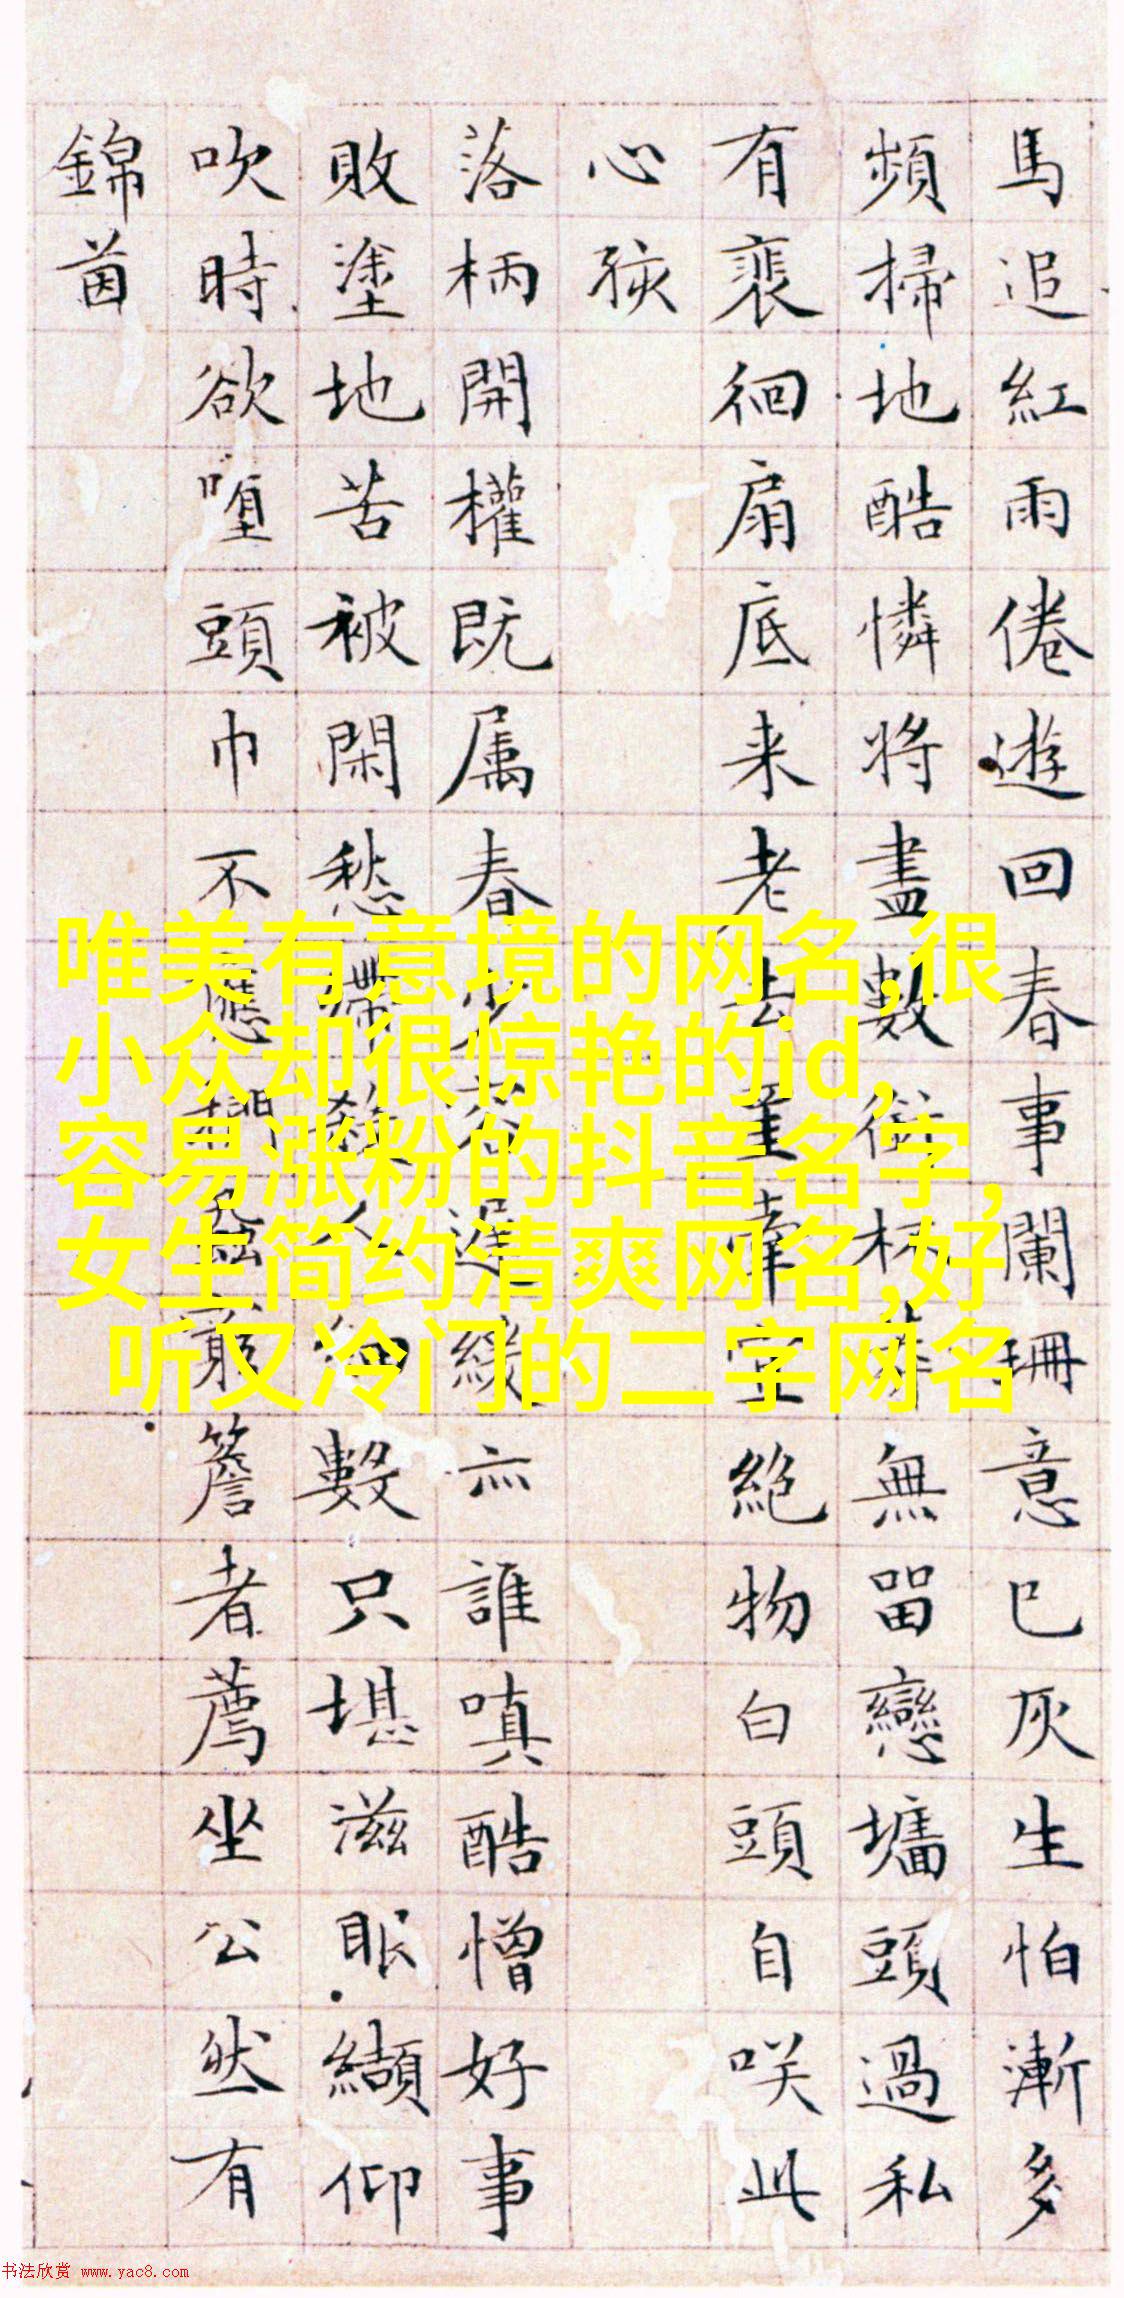 馬追紅雨倦遊回春事闌珊意已灰生怕漸多
頻掃地酷憐將盡數銜杯無留戀墻頭過私
有裴徊扇底来老去絶物白頭自咲此
心孩
落柄開權既属春少容遲緩亦誰嗔酷憎好事
敗塗地苦被閑愁殢殺人細數只堪滋眼纈仰
吹時欲堕頭巾不應捫虱窮簷者薦坐公然有
錦茵
唯美有意境的网名,很
小众却很惊艳的id,
容易涨粉的抖音名字,
女生简约清爽网名,好
听又冷门的二字网名
书法欣赏 www.yac8.com